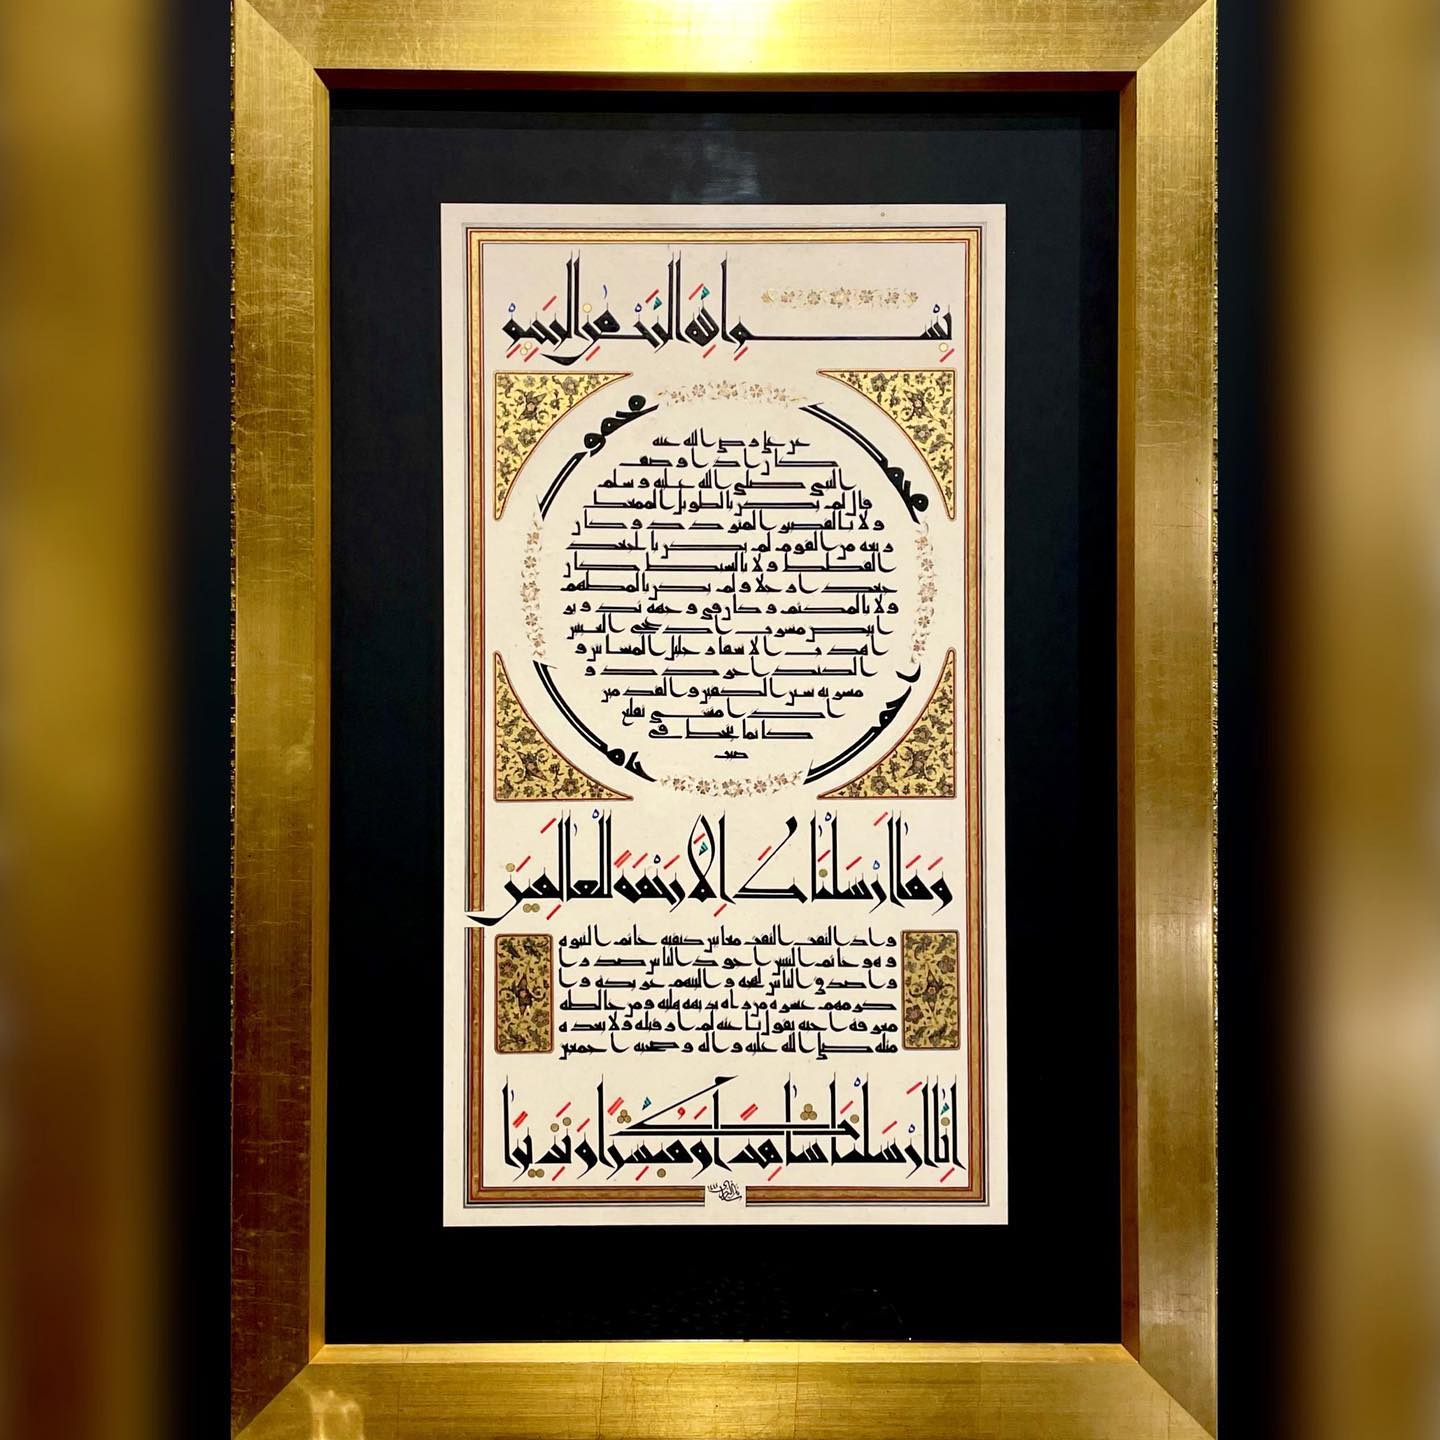 بِسْمِ اللَّهِ الرَّحْمٰنِ الرَّحِيمِ
محمد
محمود
عن علي رضي الله عنه
كان اذا وصف
النبي صلى الله عليه و سلم
قال لم يكن بالطويل الممغط
ولا بالقصير المتردد و كان
ربعة من القوم لم يكن بالجعد
القطط ولا بالسبط كان
جعدا رجلا ولم يكن بالمطهم
ولا بالمكلثم و كان في وجهه تدوير
ابيض مشرب ادعج العينين
اهدب الاشفار جليل المشاش و
الكتد اجرد ذو
مسربة شثن الكفين و القدمين
اذا مشى تقلع
كانما ينحط في
صبب
احمد
حامد
وَمَا اَرْسَلْنَاكَ اِلَّا رَحْمَةً لِلْعَالَمِينَ
واذا التفت التفت معا بين كتفيه خاتم النبوة
وهو خاتم النبيين اجود الناس صدرا
واصدق الناس لهجة والينهم عريكة وا
كرمهم عشرة من راه بديهة هابه ومن خالطه
معرفة احبه يقول ناعته لم ار قبله ولا بعده
مثله صلى الله عليه واله وصحبه اجمعين
اِنَّا اَرْسَلْنَاكَ شَاهِدًا وَمُبَشِّرًا وَنَذِيرًا